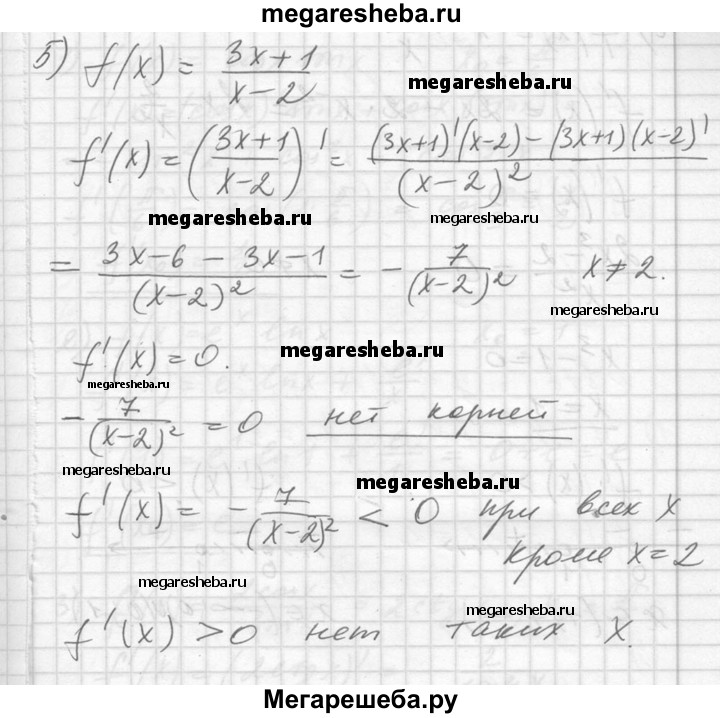 megaresheba.ru
5) f(x) = (3x+1)/(x-2)
megaresheba.ru
f'(x) = ((3x+1)/(x-2))' = ((3x+1)'(x-2) - (3x+1)(x-2)')/(x-2)²
megaresheba.ru
megaresheba.ru
= (3x-6-3x-1)/(x-2)² = -7/(x-2)² x≠2.
megaresheba.ru
f'(x) = 0.
megaresheba.ru
megaresheba.ru
-7/(x-2)² = 0 нет корней
megaresheba.ru
megaresheba.ru
f'(x) = -7/(x-2)² < 0 при всех x
кроме x=2
megaresheba.ru
megaresheba.ru
f'(x) > 0 нет таких x.
Мегарешеба.ру